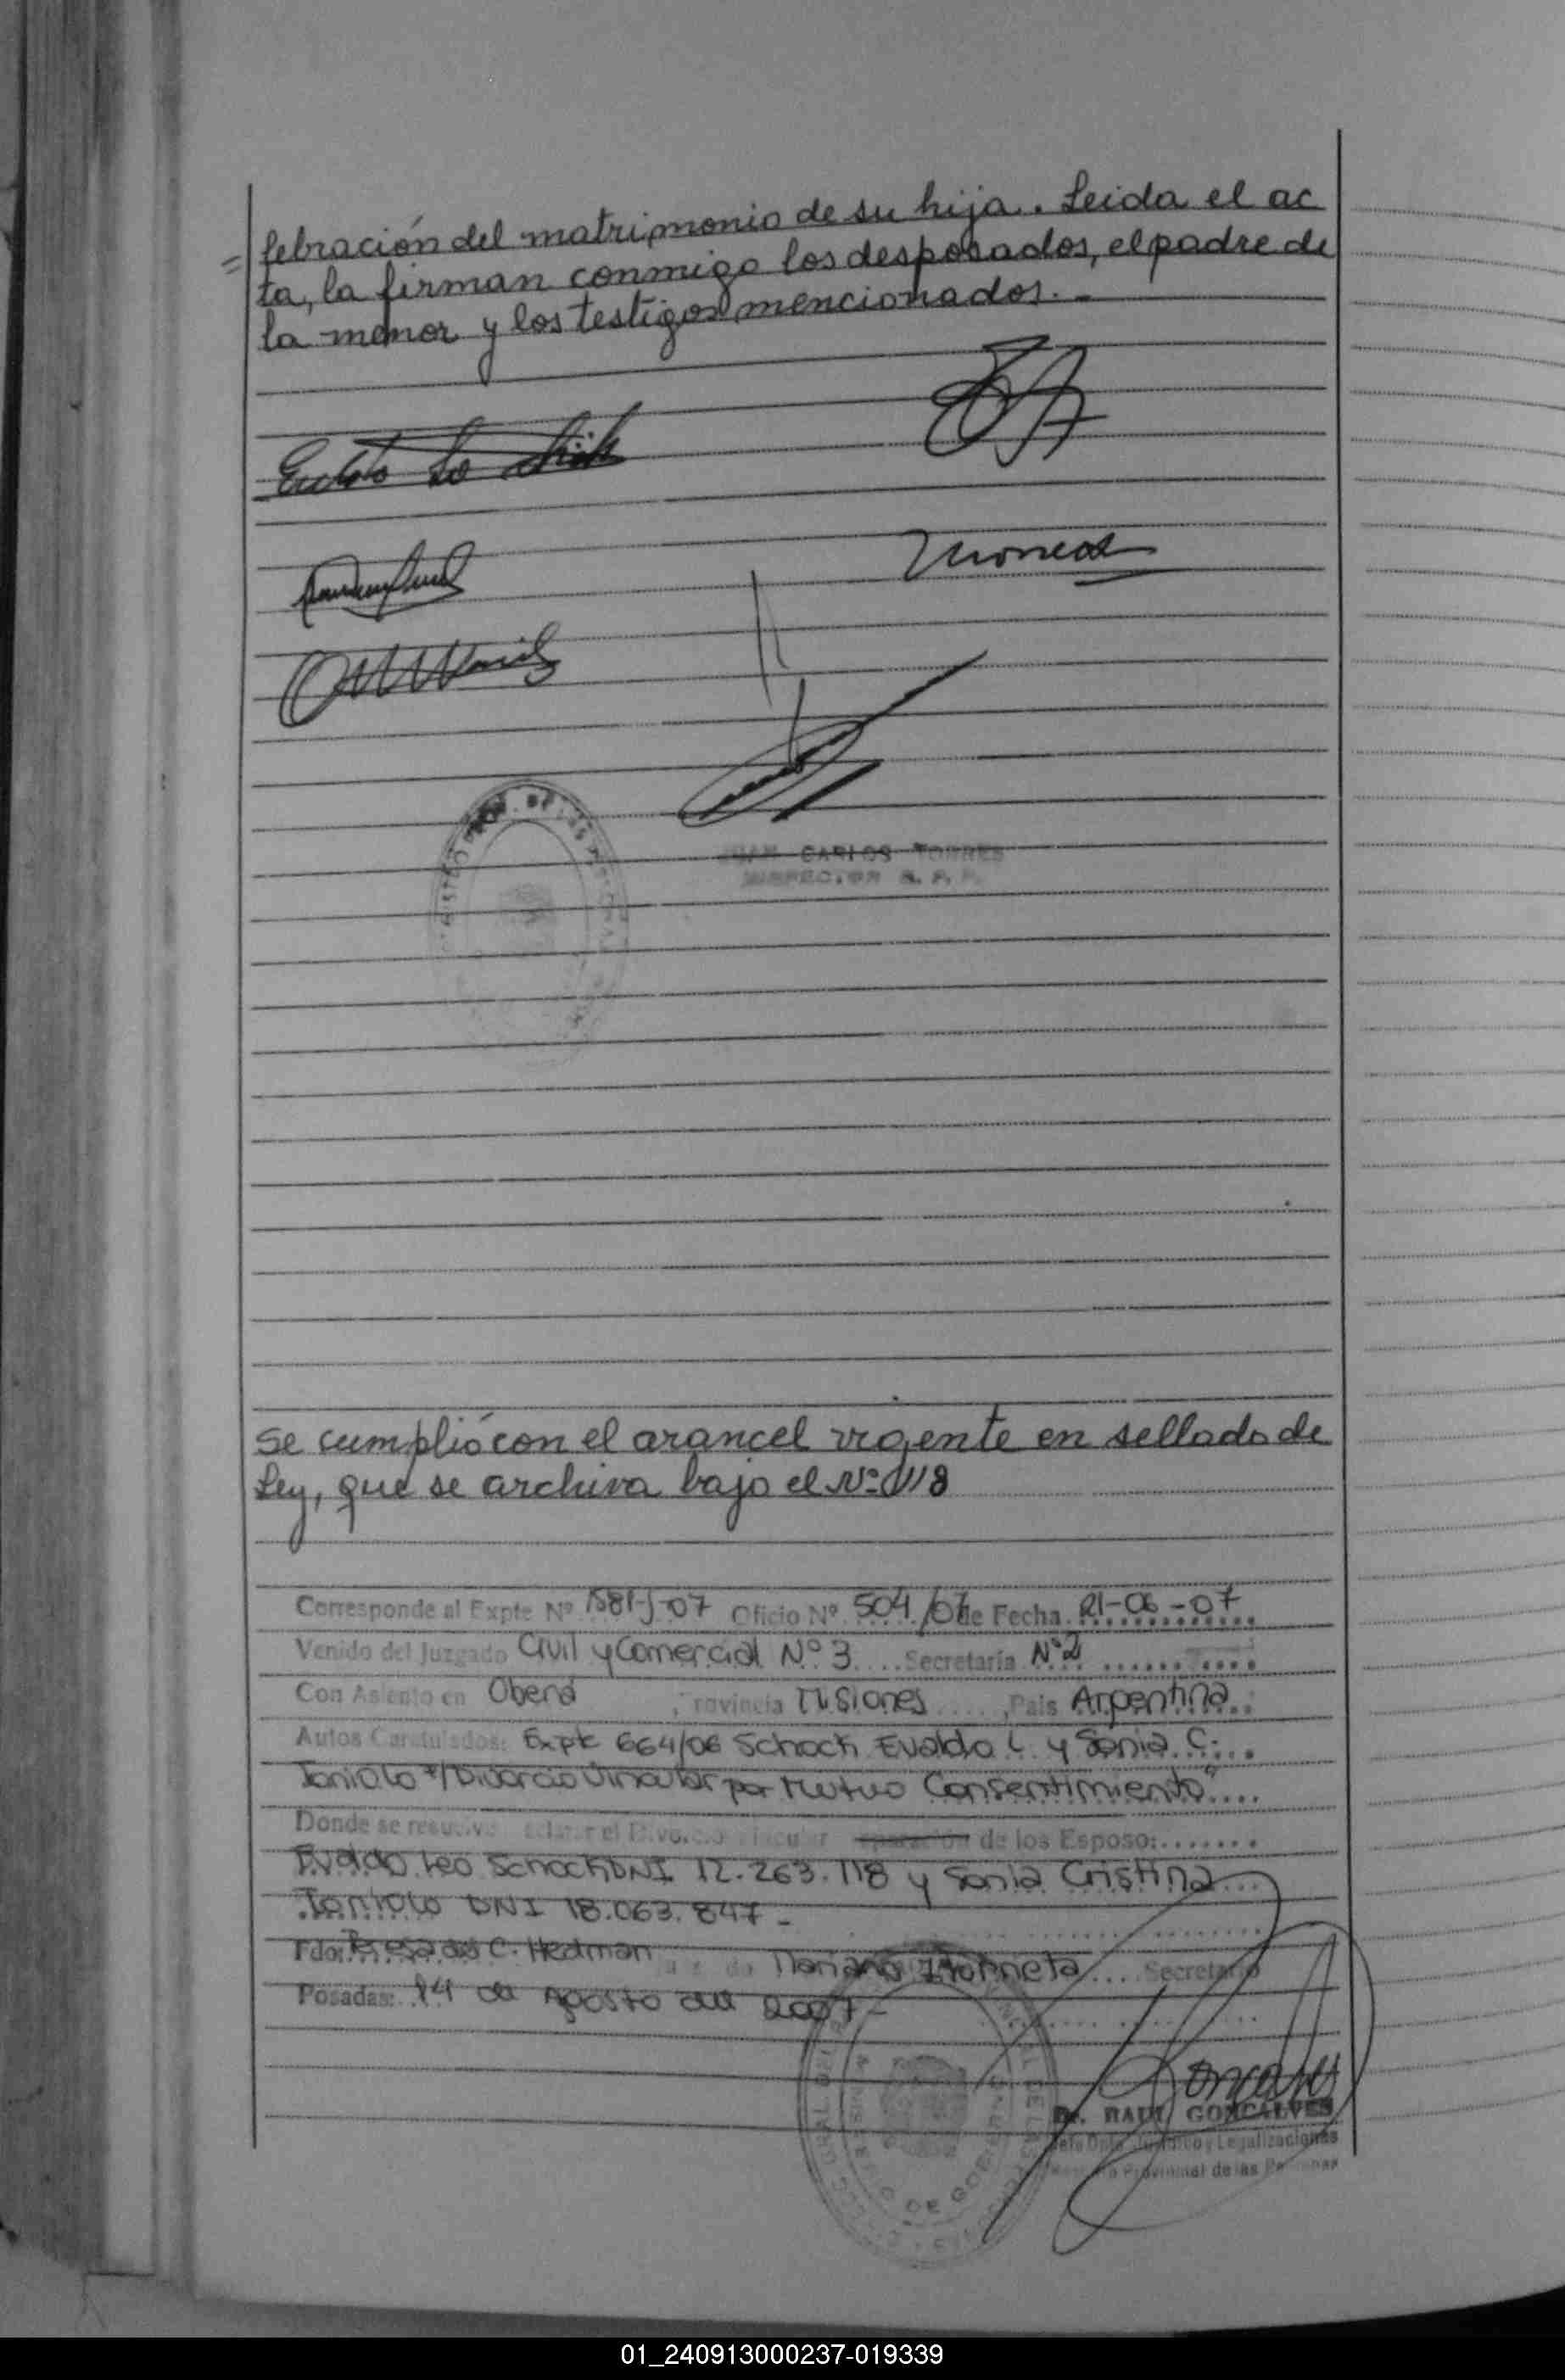 = lebración del matrimonio de su hija. Leida el ac
ta, la firman conmigo los desposados, el padre de
la menor y los testigos mencionados. -
JUAN CARLOS TORRES
INSPECTOR R. P. P.
Se cumplió con el arancel vigente en sellado de
Ley, que se archiva bajo el Nº 118
Corresponde al Expte Nº 1581-J-07 Oficio Nº 504/07 de Fecha 21-06-07
Venido del Juzgado Civil y Comercial Nº 3 Secretaría Nº 2
Con Asiento en Oberá, Provincia Misiones, País Argentina
Autos Caratulados: Expte 664/06 Schoch Evaldo L. y Sonia C.
Toniolo s/Divorcio Vincular por Mutuo Consentimiento"
Donde se resuelve declarar el Divorcio Vincular de los Esposo:
Evaldo Leo Schoch DNI 12.263.118 y Sonia Cristina
Toniolo DNI 18.063.847-
Fdo: C. Hedman Mariano Secretario
Posadas: 14 de Agosto del 2007-
Dr. RAUL GONCALVES
Jefe Dpto. Jurídico y Legalizaciones
Registro Provincial de las Personas
01_240913000237-019339